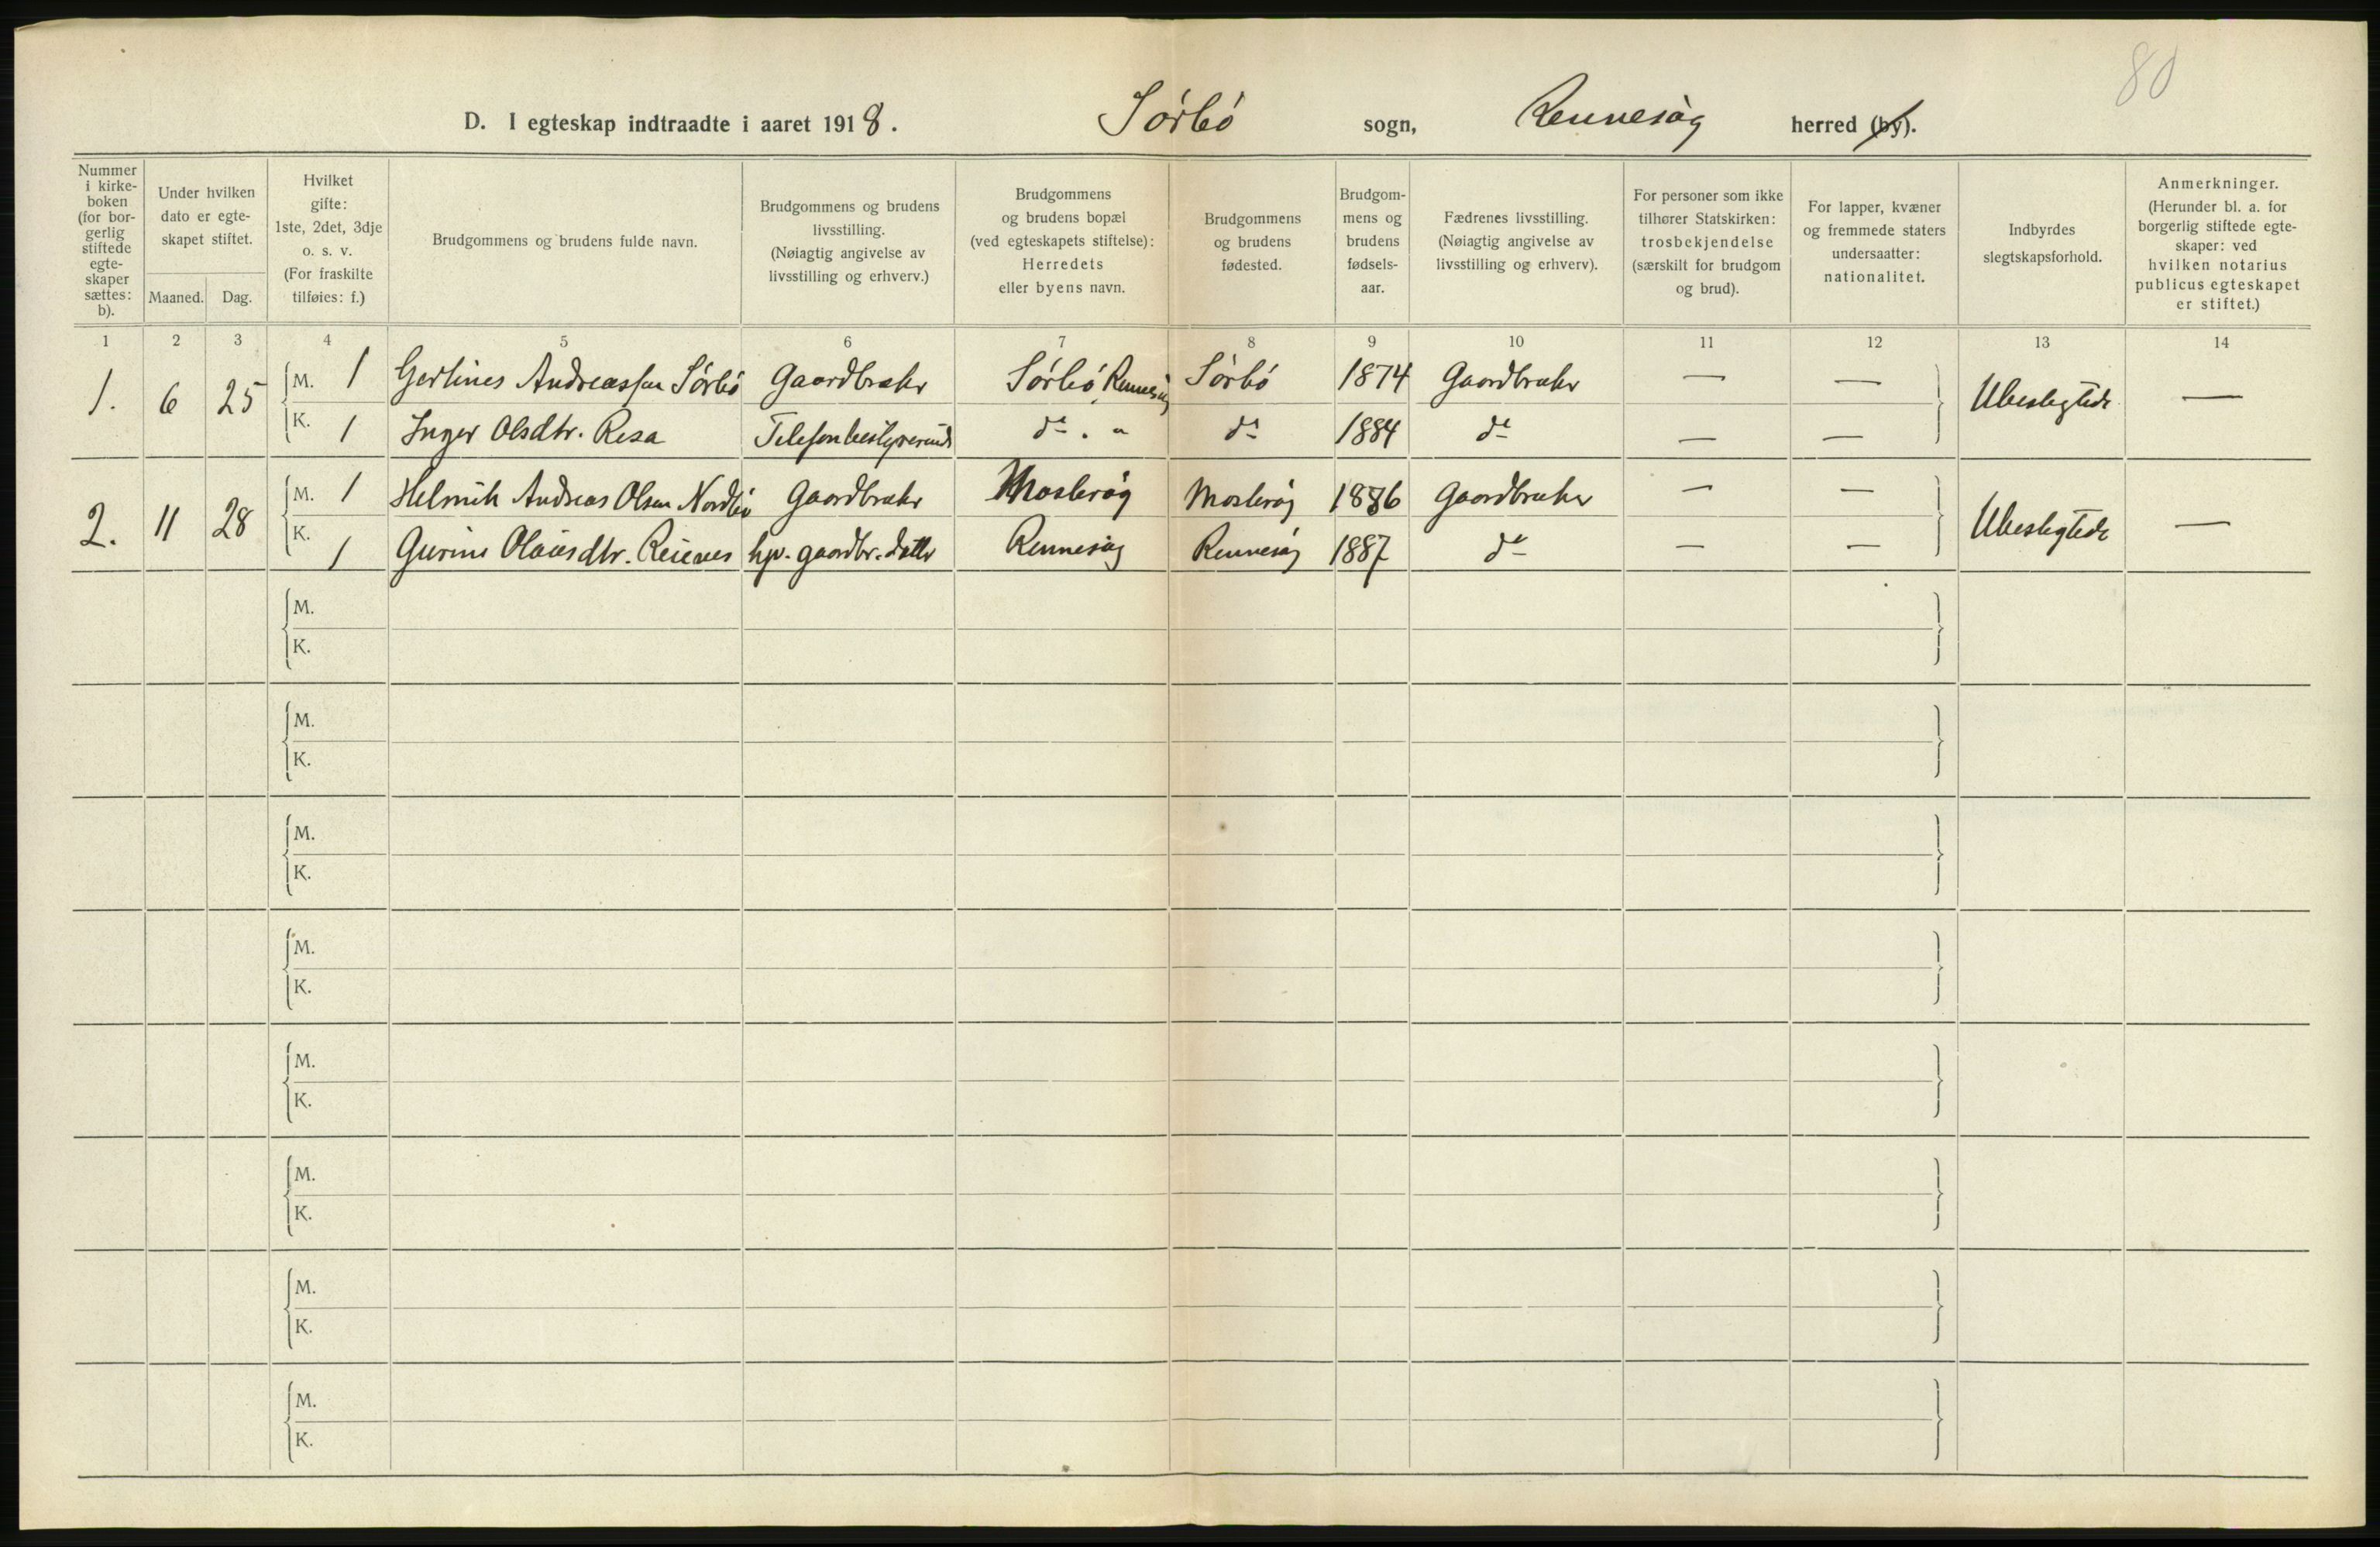 80
D. I egteskap indtraadte i aaret 1918. Sørbø sogn, Rennesøy herred (by).
Nummer i kirkeboken (for borgerlig stiftede egteskaper sættes: b).
Under hvilken dato er egteskapet stiftet.
Maaned. Dag.
Hvilket gifte: 1ste, 2det, 3dje o. s. v. (For fraskilte tilføies: f.)
Brudgommens og brudens fulde navn.
Brudgommens og brudens livsstilling. (Nøiagtig angivelse av livsstilling og erhverv.)
Brudgommens og brudens bopæl (ved egteskapets stiftelse): Herredets eller byens navn.
Brudgommens og brudens fødested.
Brudgommens og brudens fødselsaar.
Fædrenes livsstilling. (Nøiagtig angivelse av livsstilling og erhverv).
For personer som ikke tilhører Statskirken: trosbekjendelse (særskilt for brudgom og brud).
For lapper, kvæner og fremmede staters undersaatter: nationalitet.
Indbyrdes slegtskapsforhold.
Anmerkninger. (Herunder bl. a. for borgerlig stiftede egteskaper: ved hvilken notarius publicus egteskapet er stiftet.)
1 2 3 4 5 6 7 8 9 10 11 12 13 14
1. 6 25 M. 1 Gertines Andreassen Sørbø Gaardbruker Sørbø, Rennesøy Sørbø 1874 Gaardbruker — — Ubeslegtede —
K. 1 Inger Olsdtr. Resa Telefonbestyrerinde do . " do 1884 do — —
2. 11 28 M. 1 Helmik Andreas Olsen Nordbø Gaardbruker Mosterøy Mosterøy 1886 Gaardbruker — — Ubeslegtede —
K. 1 Gurine Olausdtr. hj. gaardbr. datter Rennesøy Rennesøy 1887 do — —
M.
K.
M.
K.
M.
K.
M.
K.
M.
K.
M.
K.
M.
K.
M.
K.